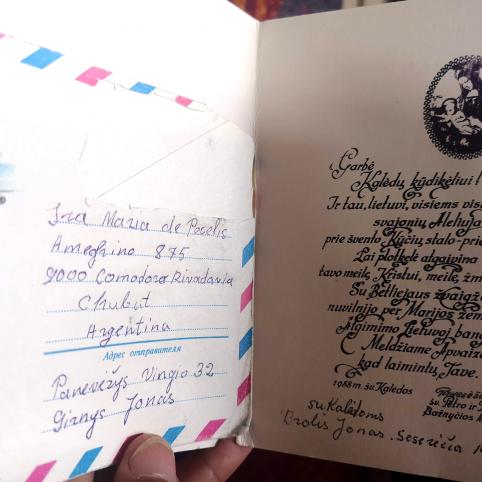 Sra Maria de
Ameghino 875
9000 Comodoro Rivadavia
Chubut
Argentina
Адрес отправителя
Panevėžys Vingio 32
Jonas
Garbė
Kalėdų kūdikėliui!
Ir tau, lietuvi, visiems
svajonių Aleliuja
prie švento Kūčių stalo-
Lai plotkelė atgaivina
tavo meilę Kristui, meilę
Su Betliejaus
nuvilnijo per Marijos
Atgimimo Lietuvoj
Meldžiame Apvaizdą
kad laimintų Jave.
1988 m. šv. Kalėdos
šv. Petro ir
Bažnyčios
su Kalėdoms
Brolis Jonas. Seserėčia